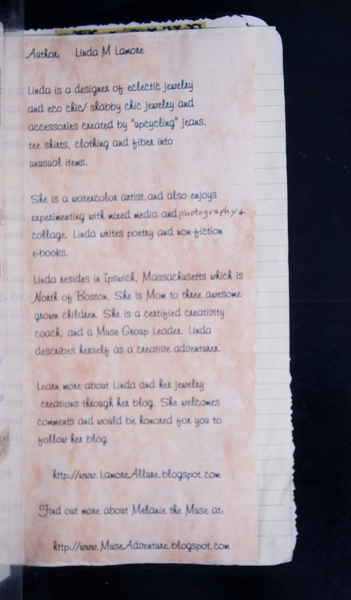 Author Linda M Lamore
Linda is a designer of eclectic jewelry
and eco chic/ shabby chic jewelry and
accessories created by "upcycling" jeans,
tee shirts, clothing and fiber into
unusual items.
She is a watercolor artist,and also enjoys
experimenting with mixed media and photography +
collage. Linda writes poetry and non-fiction
e-books.
Linda resides in Ipswich, Massachusetts which is
North of Boston. She is Mom to three awesome
grown children. She is a certified creativity
coach, and a Muse Group Leader. Linda
describes herself as a creative adventurer.
Learn more about Linda and her jewelry
creations through her blog. She welcomes
comments and would be honored for you to
follow her blog.
http://www.LamoreAllure.blogspot.com
Find out more about Melanie the Muse at:
http://www.MuseAdventure.blogspot.com